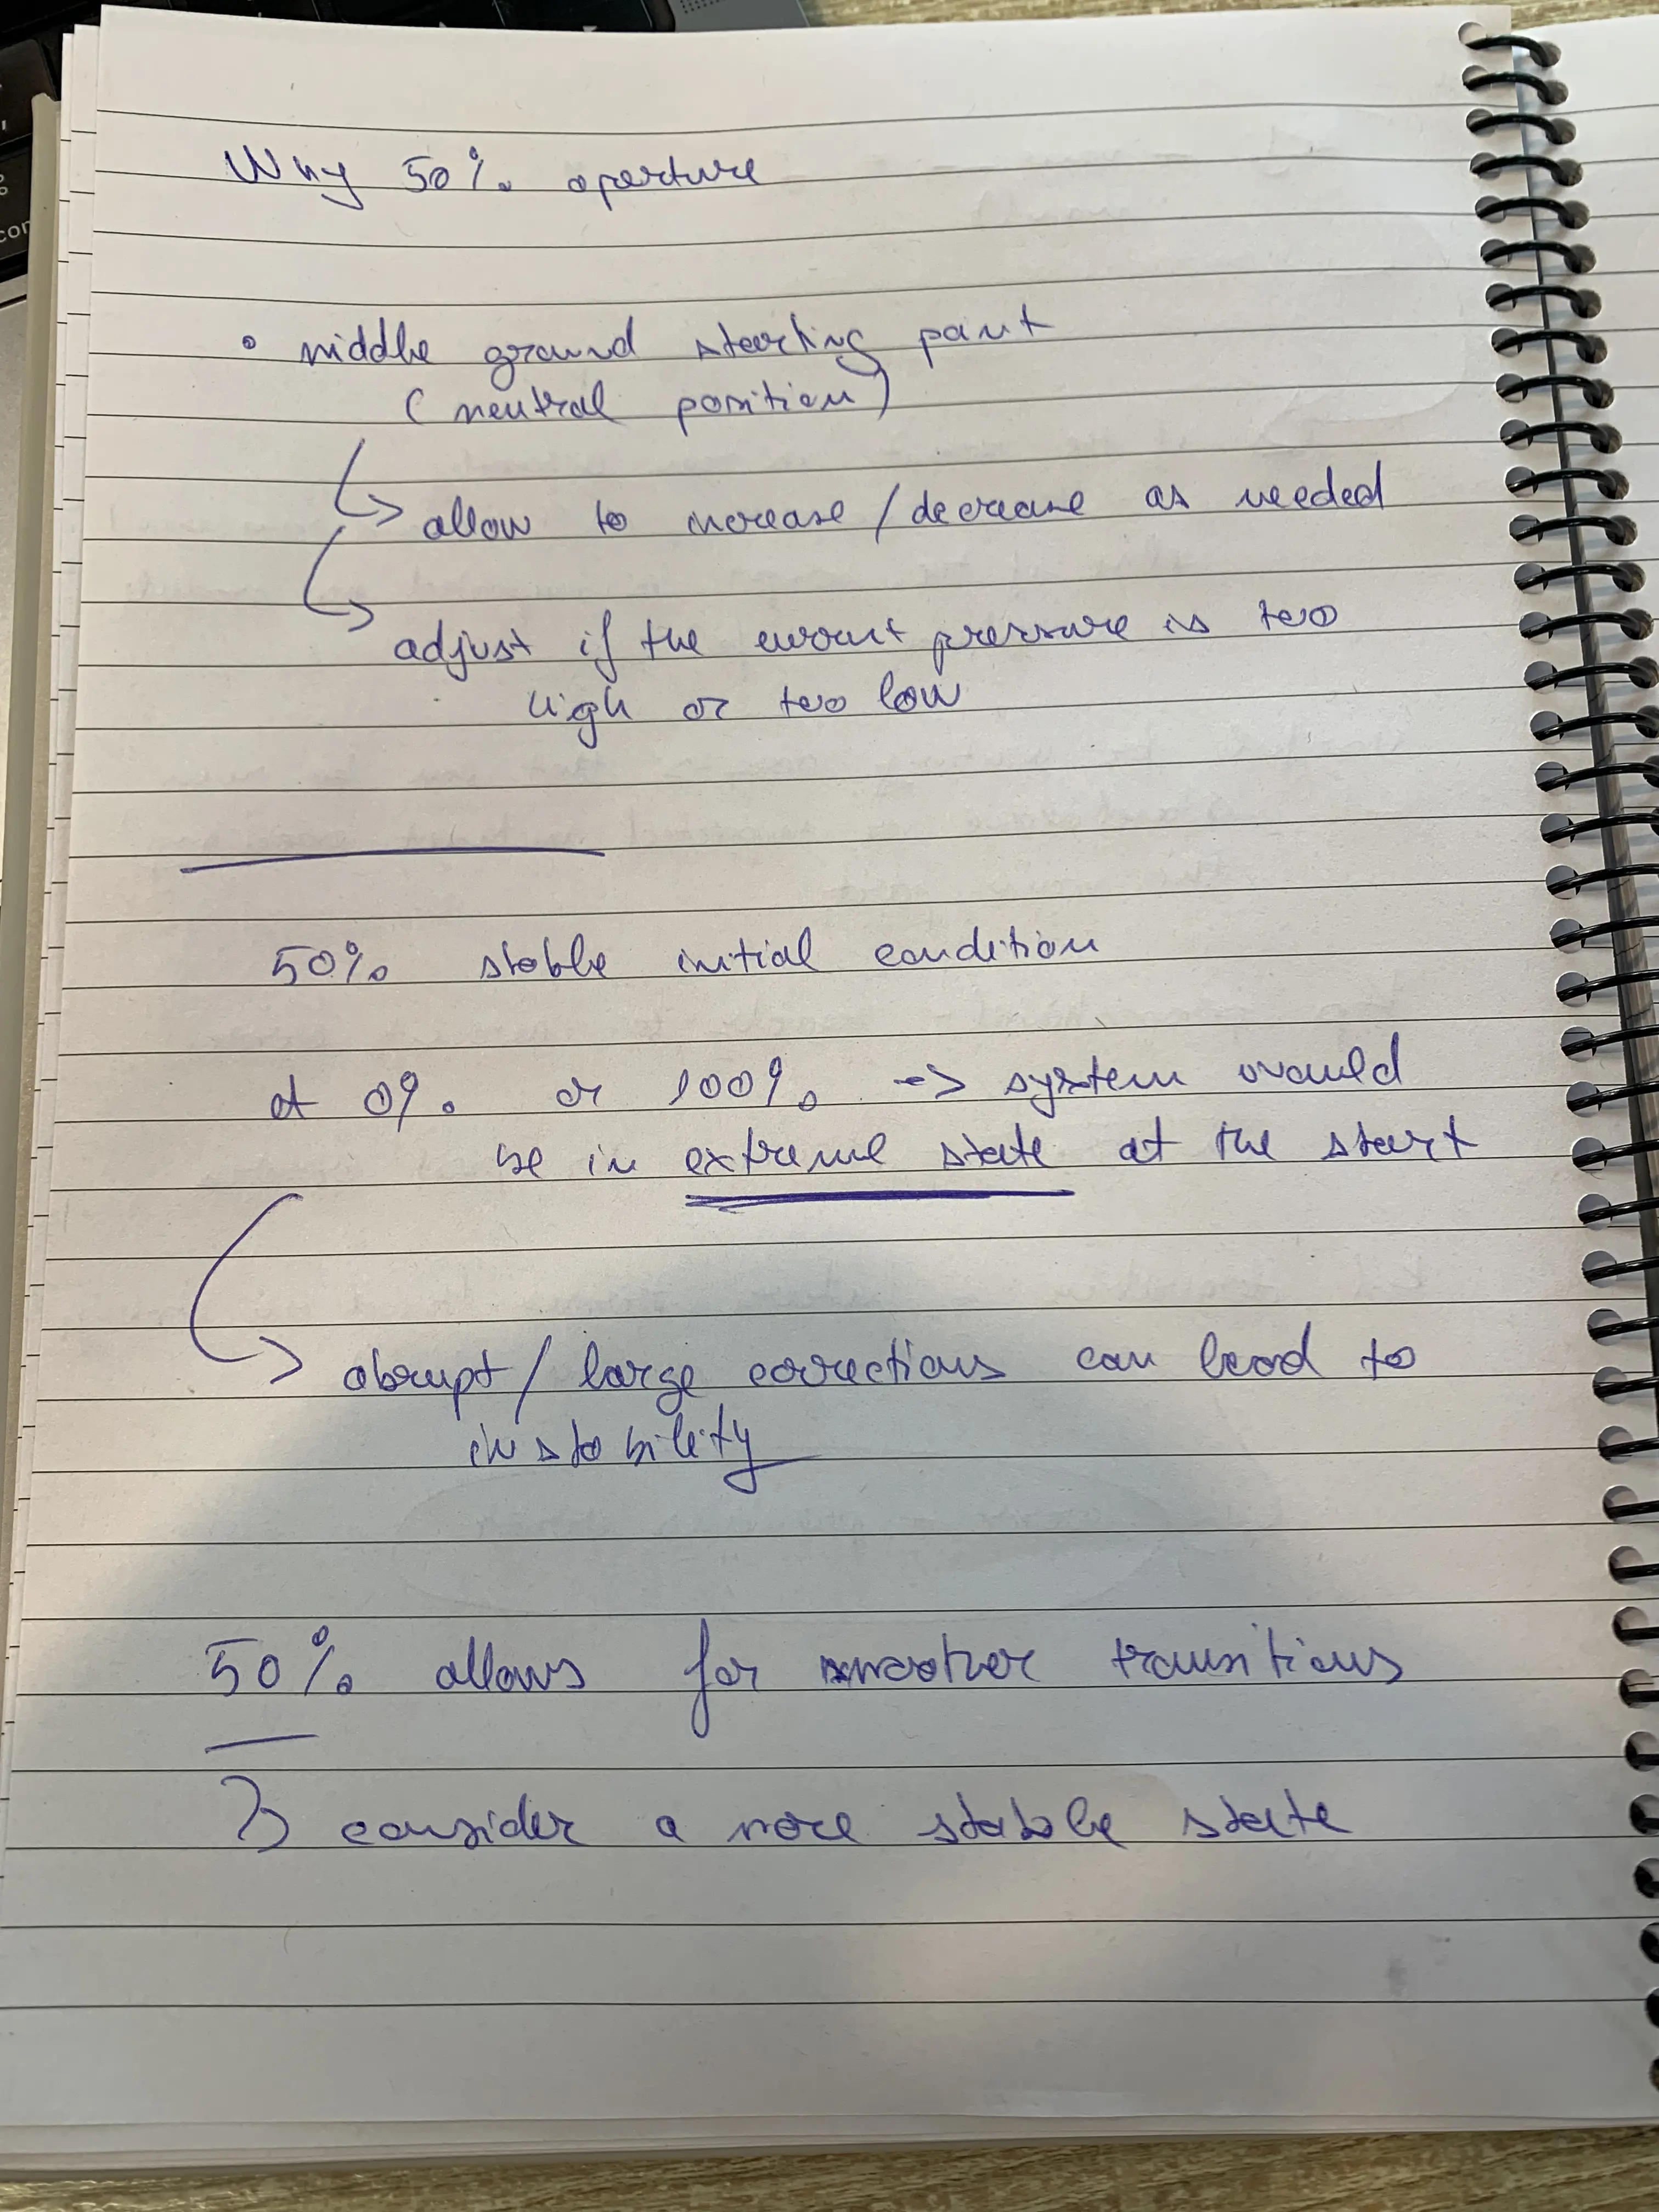 Why 50% aperture
• middle ground starting point
(neutral position)
↳ allow to increase / decrease as needed
↳ adjust if the current pressure is too
high or too low
50% stable initial condition
at 0% or 100% -> system would
be in extreme state at the start
↳ abrupt / large corrections can lead to
instability
50% allows for smoother transitions
↳ consider a more stable state